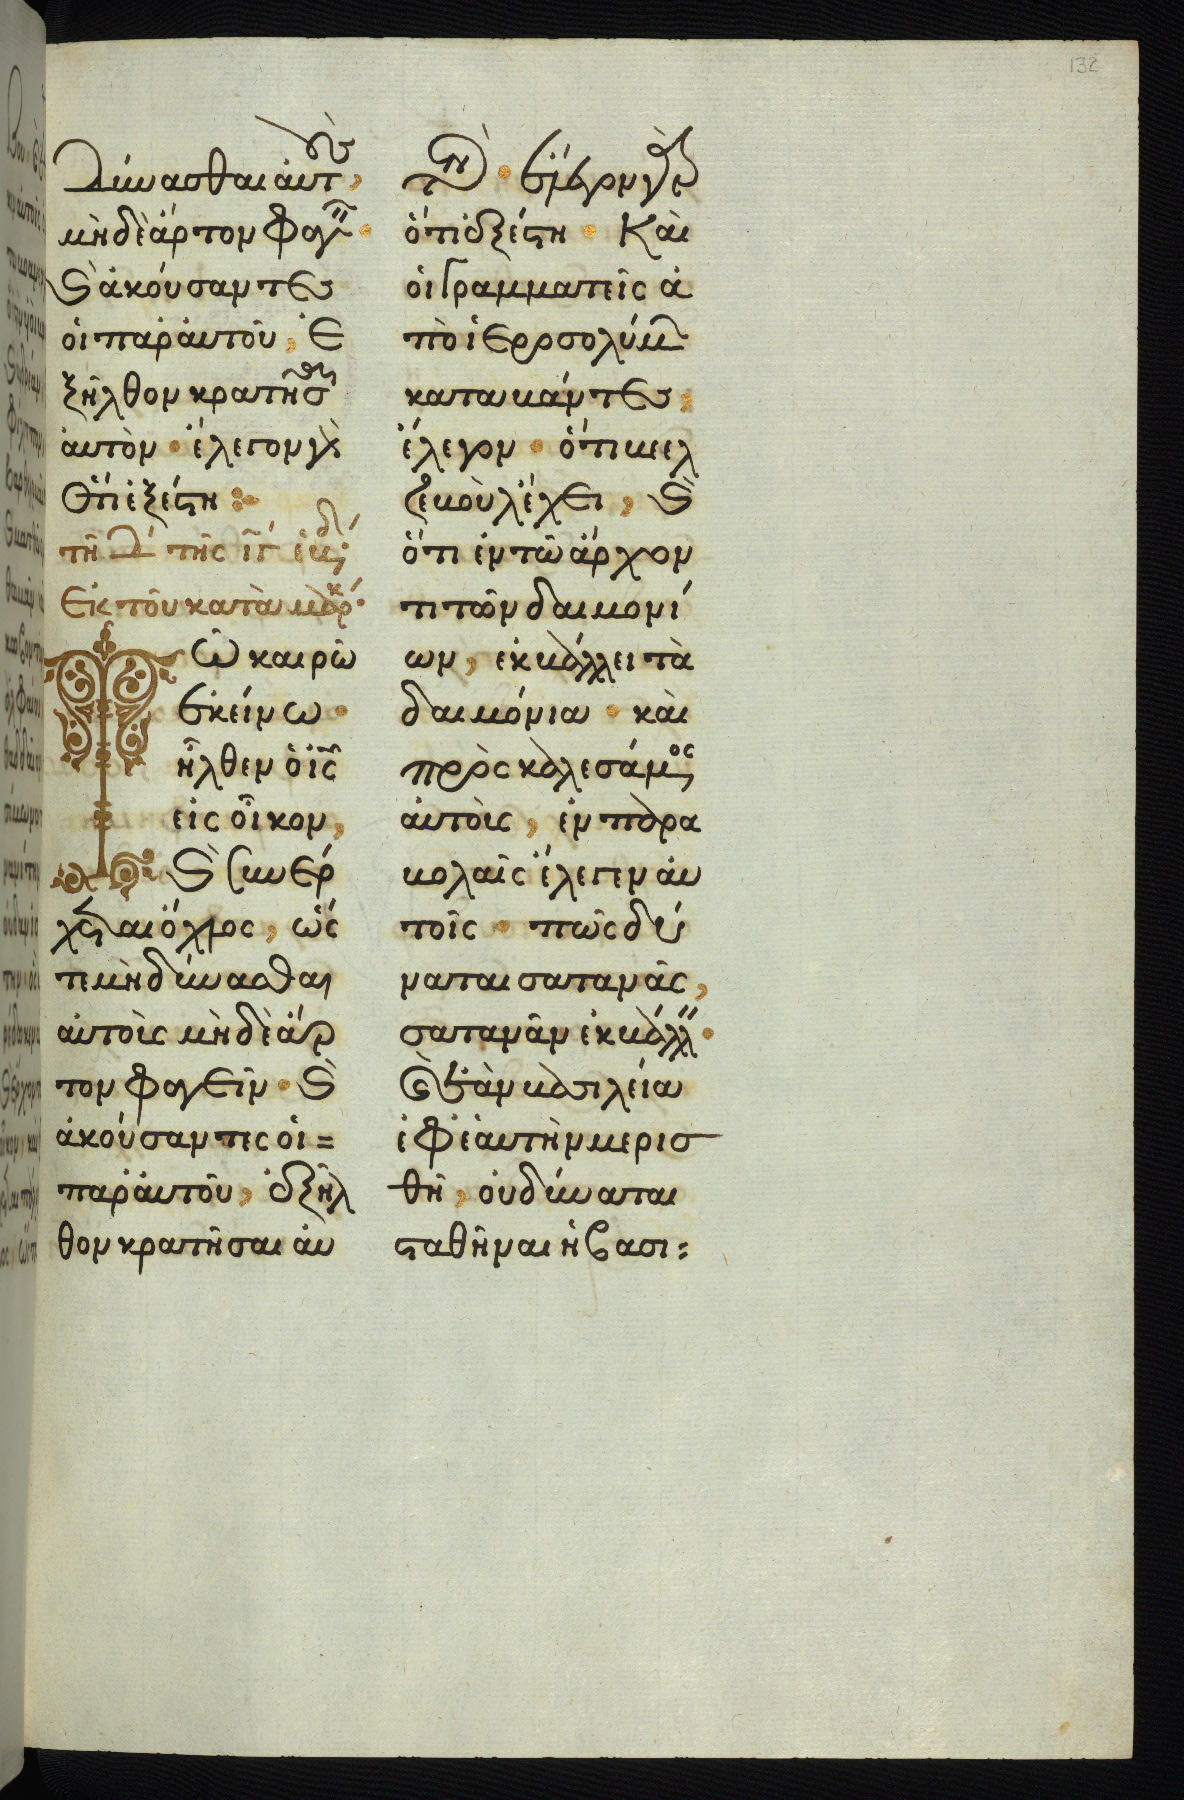 132
δύνασθαι αὐτοὺς,
μὴδὲ ἄρτον φαγεῖν·
καὶ ἀκούσαντες
οἱ παρ' αὐτοῦ, ἐ
ξῆλθον κρατῆσαι
αὐτὸν· ἔλεγον γὰρ
ὅτι ἐξέστη:
τῇ δ´ τῆς ιγ´ ἑβδ´
Ἐκ τοῦ κατὰ μάρκ´
Τῶ καιρῶ
ἐκείνω·
ἦλθεν ὁ ἰς
εἰς οἶκον,
καὶ συνέρ
χεται ὄχλος, ὥς
τε μὴ δύνασθαι
αὐτοὺς μὴδὲ ἄρ
τον φαγεῖν· καὶ
ἀκούσαντες οἱ=
παρ' αὐτοῦ, ἐξῆλ
θον κρατῆσαι αὐ
τὸν· ἔλεγον γὰρ
ὅτι ἐξέστη· Καὶ
οἱ γραμματεῖς ἀ
πὸ ἱεροσολύμων
καταβάντες,
ἔλεγον· ὅτι βεελ
ζεβοὺλ ἔχει, καὶ
ὅτι ἐν τῶ ἄρχον
τι τῶν δαιμονί
ων, ἐκβάλλει τὰ
δαιμόνια· καὶ
πρὸσκαλεσάμενος
αὐτοὺς, ἐν παρα
βολαῖς ἔλεγεν αὐ
τοῖς· πῶς δύ
ναται σατανᾶς,
σατανᾶν ἐκβάλλειν·
καὶ ἐὰν βασιλεία
ἐφ' ἑαυτὴν μερισ
θῆ, οὐ δύναται
σταθῆναι ἡ βασι: